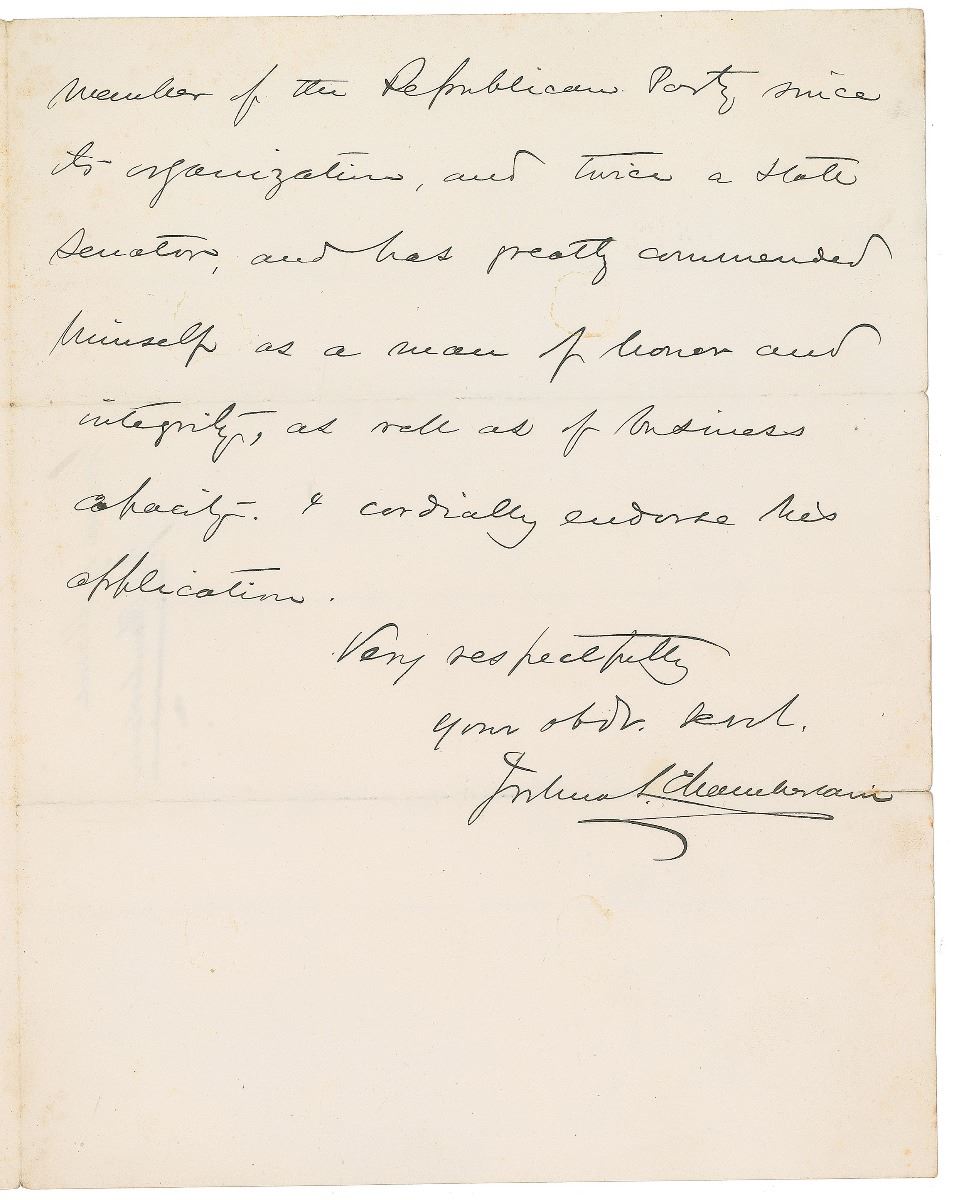 member of the Republican Party since
its organization, and twice a State
Senator, and has greatly commended
himself as a man of honor and
integrity, as well as of business
capacity. I cordially endorse his
application.
Very respectfully
your obdt. servt.
Joshua L. Chamberlain